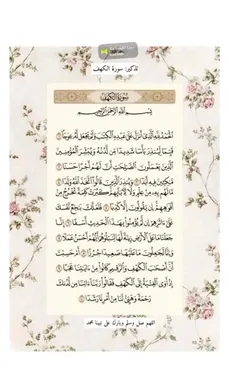 تذكير: سورة الكهف
سُورَةُ الكَهْفِ
بِسْمِ اللَّهِ الرَّحْمَٰنِ الرَّحِيمِ
الْحَمْدُ لِلَّهِ الَّذِي أَنزَلَ عَلَىٰ عَبْدِهِ الْكِتَٰبَ وَلَمْ يَجْعَل لَّهُ عِوَجَا ١
قَيِّمًا لِّيُنذِرَ بَأْسًا شَدِيدًا مِّن لَّدُنْهُ وَيُبَشِّرَ الْمُؤْمِنِينَ
الَّذِينَ يَعْمَلُونَ الصَّٰلِحَٰتِ أَنَّ لَهُمْ أَجْرًا حَسَنًا ٢
مَّٰكِثِينَ فِيهِ أَبَدًا ٣ وَيُنذِرَ الَّذِينَ قَالُوا اتَّخَذَ اللَّهُ وَلَدًا ٤
مَّا لَهُم بِهِ مِنْ عِلْمٍ وَلَا لِءَابَائِهِمْ كَبُرَتْ كَلِمَةً تَخْرُجُ مِنْ
أَفْوَٰهِهِمْ إِن يَقُولُونَ إِلَّا كَذِبًا ٥ فَلَعَلَّكَ بَٰخِعٌ نَّفْسَكَ
عَلَىٰ ءَاثَٰرِهِمْ إِن لَّمْ يُؤْمِنُوا بِهَٰذَا الْحَدِيثِ أَسَفًا ٦ إِنَّا
جَعَلْنَا مَا عَلَى الْأَرْضِ زِينَةً لَّهَا لِنَبْلُوَهُمْ أَيُّهُمْ أَحْسَنُ عَمَلًا ٧
وَإِنَّا لَجَٰعِلُونَ مَا عَلَيْهَا صَعِيدًا جُرُزًا ٨ أَمْ حَسِبْتَ
أَنَّ أَصْحَٰبَ الْكَهْفِ وَالرَّقِيمِ كَانُوا مِنْ ءَايَٰتِنَا عَجَبًا ٩
إِذْ أَوَى الْفِتْيَةُ إِلَى الْكَهْفِ فَقَالُوا رَبَّنَا ءَاتِنَا مِن لَّدُنكَ
رَحْمَةً وَهَيِّئْ لَنَا مِنْ أَمْرِنَا رَشَدًا ١٠
اللهم صل وسلم وبارك على نبينا محمد